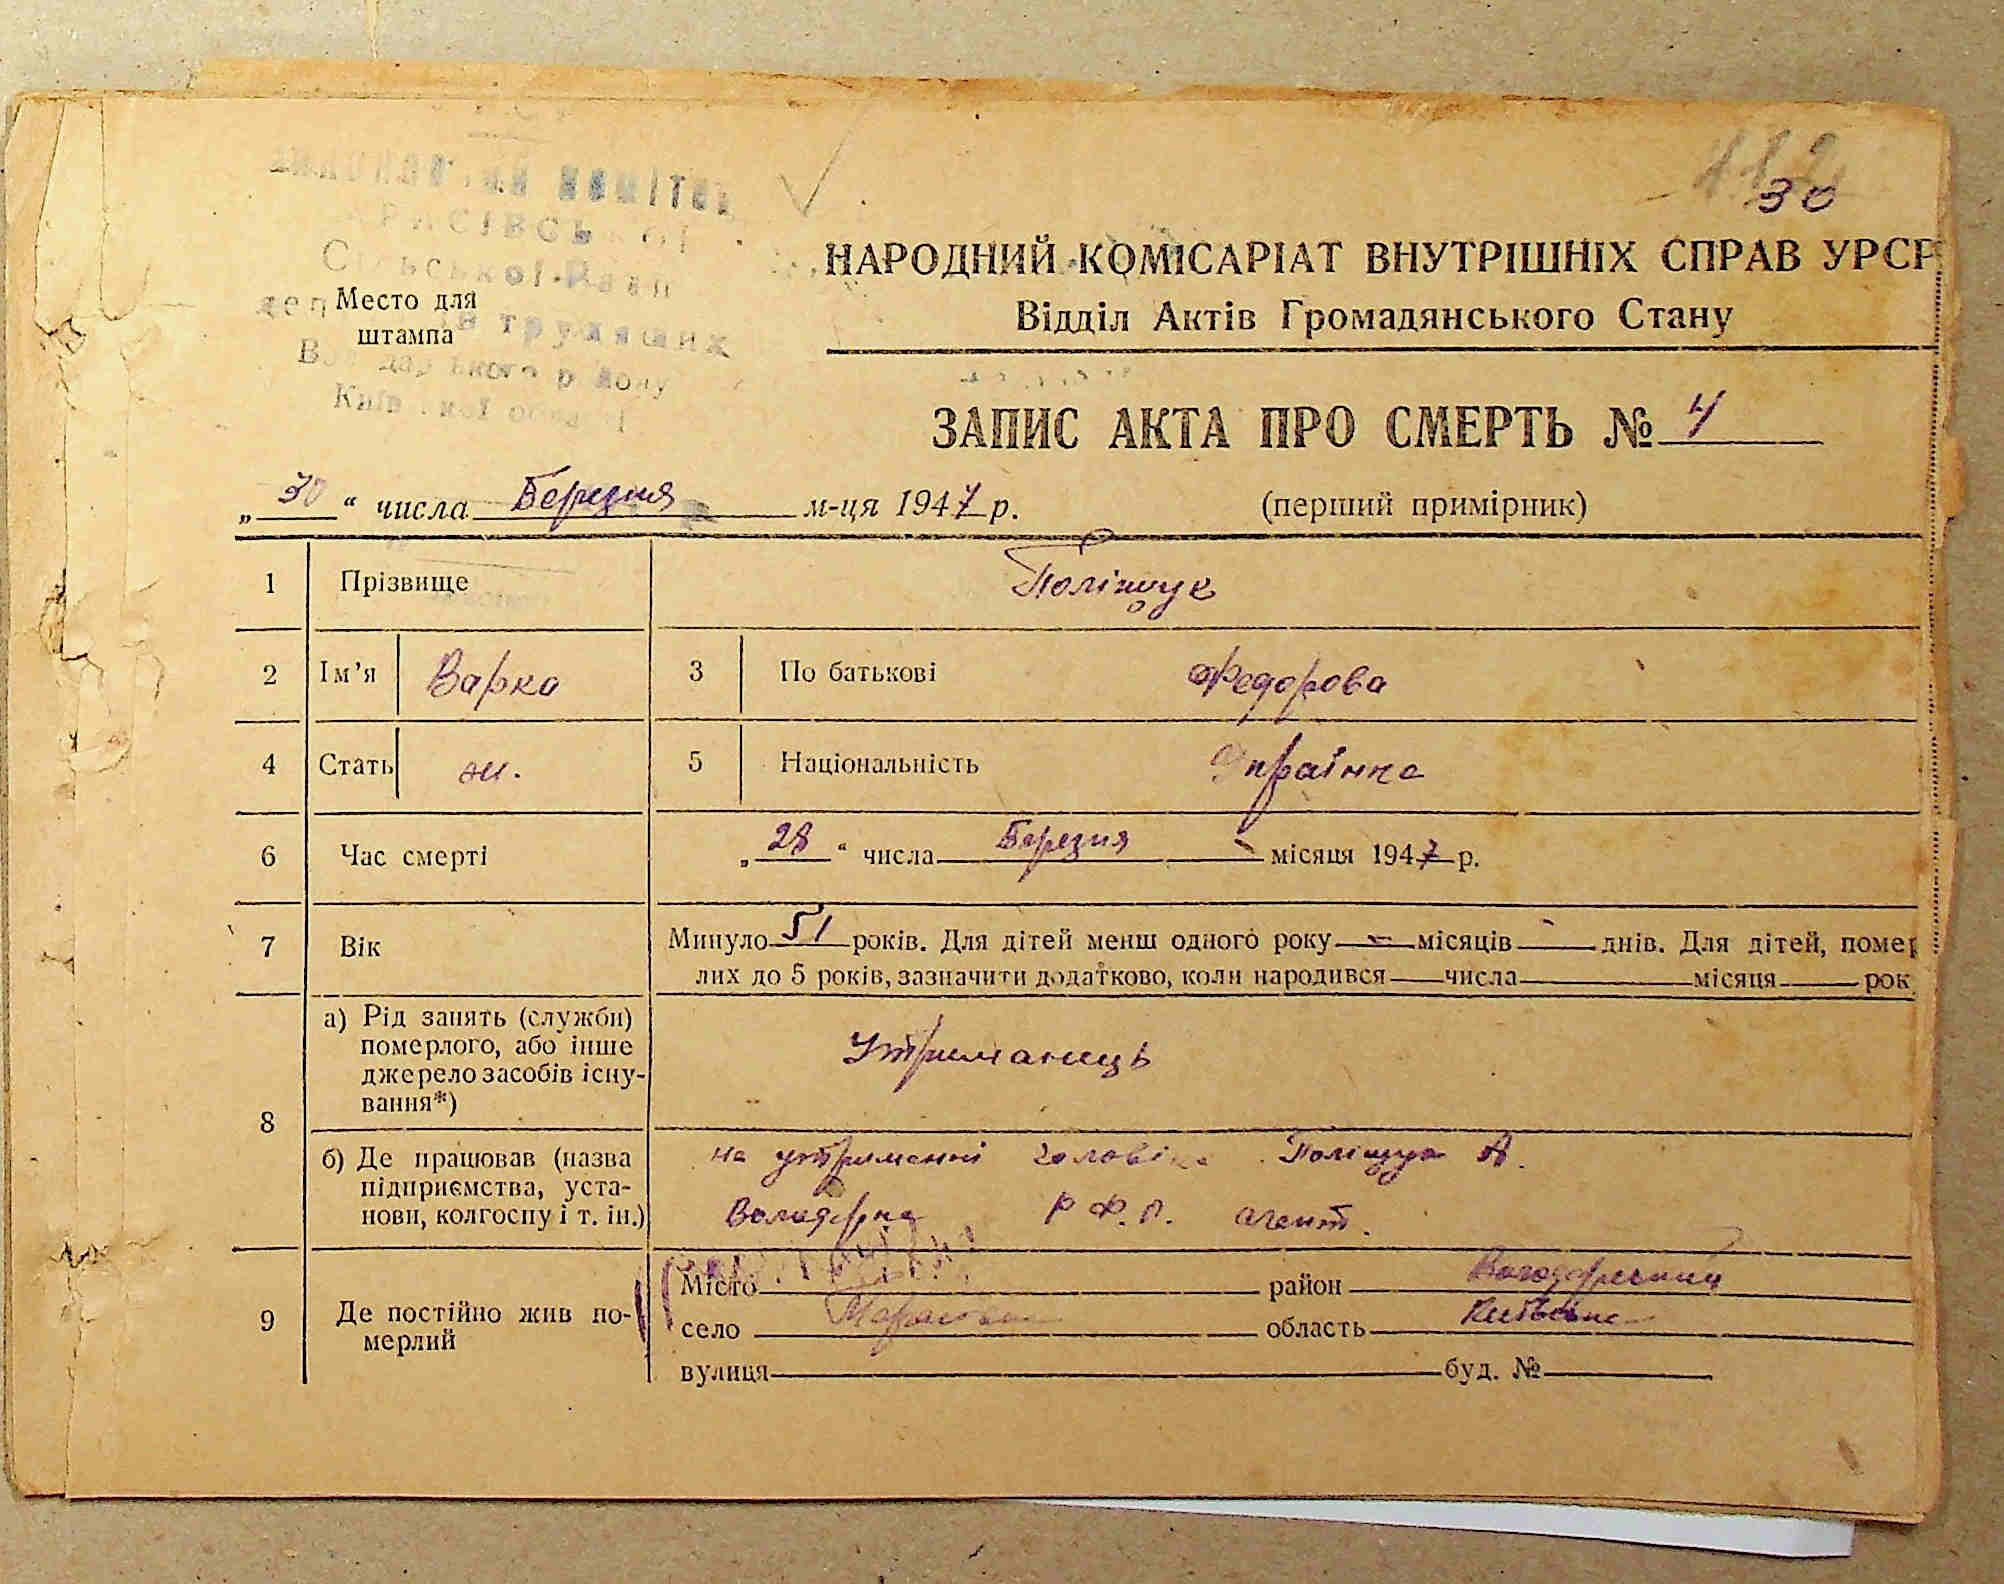 30
НАРОДНИЙ КОМІСАРІАТ ВНУТРІШНІХ СПРАВ УРСР
Відділ Актів Громадянського Стану
Сільської Ради
Место для
штампа
трудящих
Володарського району
Київської області
ЗАПИС АКТА ПРО СМЕРТЬ № 4
„30“ числа Березня м-ця 1947 р. (перший примірник)
1 Прізвище Поліщук
2 Ім’я Варка 3 По батькові Федорова
4 Стать ж. 5 Національність Українка
6 Час смерті „28“ числа Березня місяця 1947 р.
7 Вік Минуло 51 років. Для дітей менш одного року — місяців - днів. Для дітей, помер
лих до 5 років, зазначити додатково, коли народився числа місяця рок
8 а) Рід занять (служби)
померлого, або інше
джерело засобів існу-
вання*) Утриманець
б) Де працював (назва
підприємства, уста-
нови, колгоспу і т. ін.)
на утриманні чоловіка Поліщук А.
Володарка Р.Ф.П. агент.
9 Де постійно жив по-
мерлий
Місто район Володарський
село область Київська
вулиця буд. №